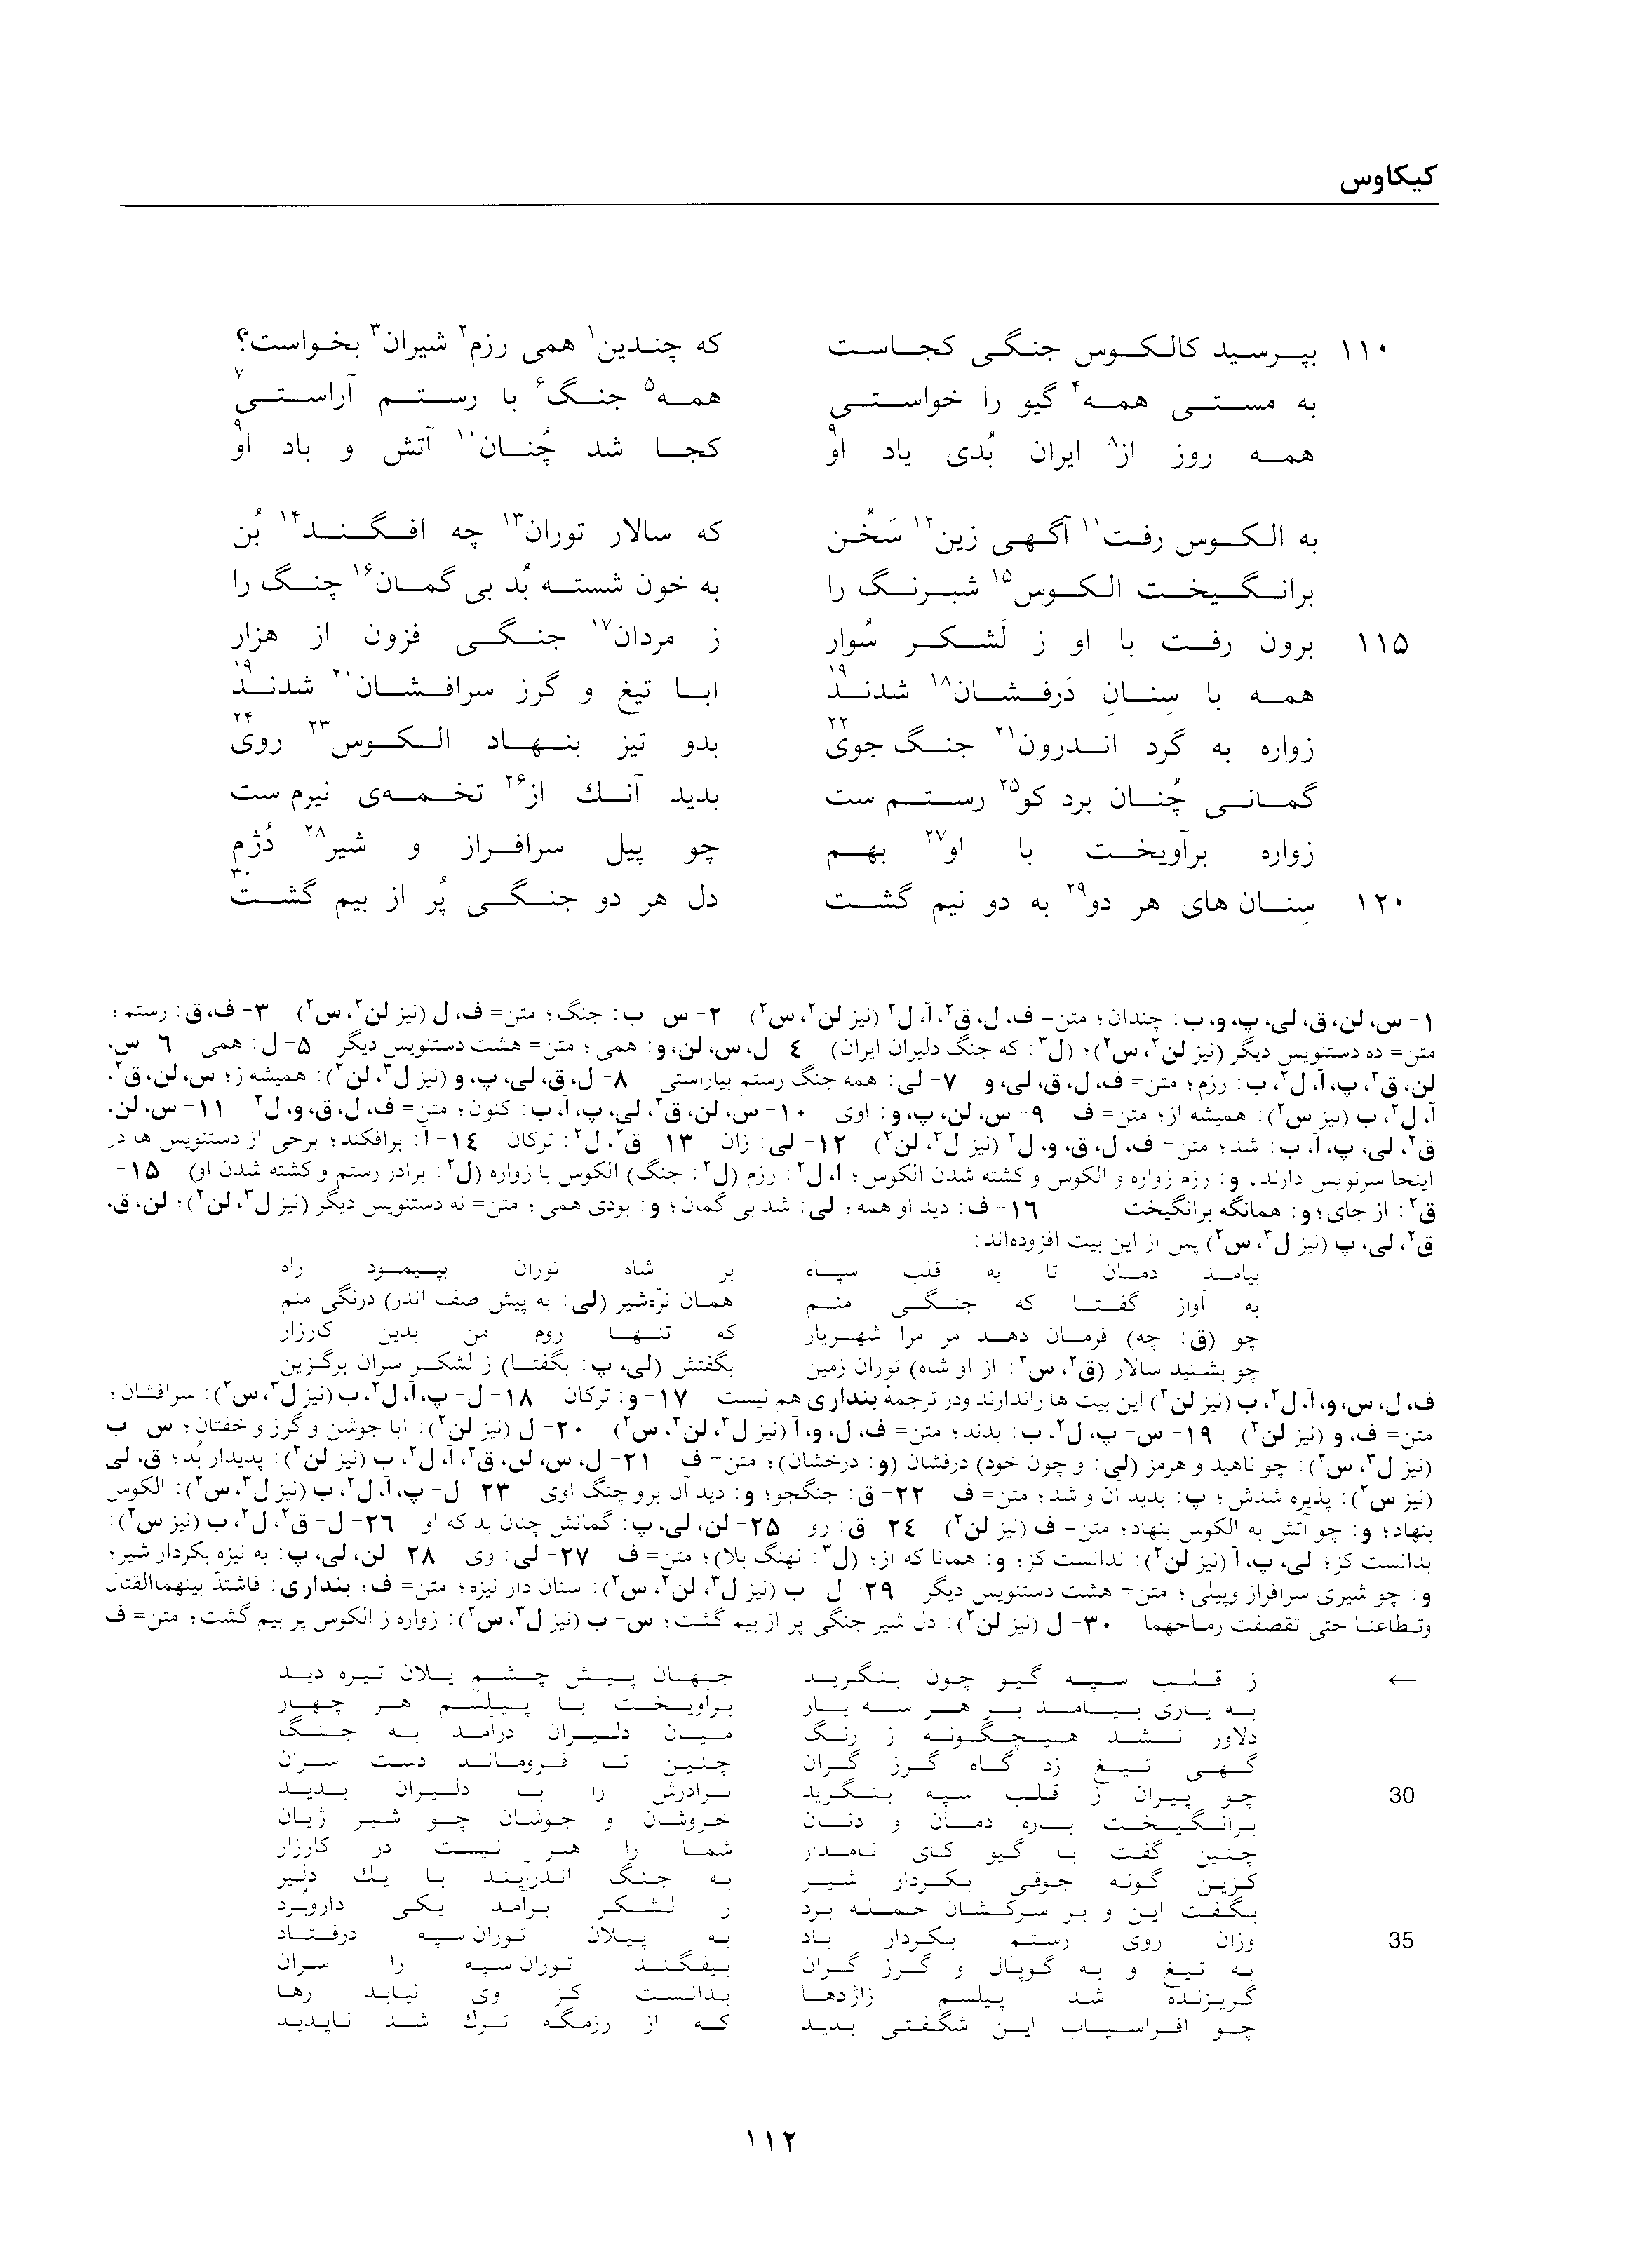 کیکاوس
۱۱۰ بپرسید کالکوس جنگی کجاست که چندین¹ همی رزم² شیران³ بخواست؟
به مستی همه⁴ گیو را خواستی همه⁵ جنگ⁶ با رستم آراستی⁷
همه روز از⁸ ایران بُدی یاد او⁹ کجا شد چُنان¹⁰ آتش و باد او⁹
به الکوس رفت¹¹ آگهی زین¹² سَخُن که سالار توران¹³ چه افگند¹⁴ بُن
برانگیخت الکوس¹⁵ شبرنگ را به خون شسته بُد بی گمان¹⁶ چنگ را
۱۱۵ برون رفت با او ز لَشکر سُوار ز مردان¹⁷ جنگی فزون از هزار
همه با سِنانِ دَرفشان¹⁸ شدند¹⁹ ابا تیغ و گرز سرافشان²⁰ شدند¹⁹
زواره به گرد اندرون²¹ جنگ جوی²² بدو تیز بنهاد الکوس²³ روی²⁴
گمانی چُنان برد کو²⁵ رستم ست بدید آنك از²⁶ تخمه‌ی نیرم ست
زواره برآویخت با او²⁷ بهم چو پیل سرافراز و شیر²⁸ دُژم
۱۲۰ سِنان های هر دو²⁹ به دو نیم گشت دل هر دو جنگی پُر از بیم گشت³⁰
۱- س، لن، ق، لی، پ، و، ب: چندان؛ متن= ف، ل، ق²، آ، ل² (نیز لن²، س²) ۲- س- ب: جنگ؛ متن= ف، ل (نیز لن²، س²) ۳- ف، ق: رستم؛
متن= ده دستنویس دیگر (نیز لن²، س²)؛ (ل³: که جنگ دلیران ایران) ٤- ل، س، لن، و: همی؛ متن= هشت دستنویس دیگر ٥- ل: همی ٦- س،
لن، ق²، پ، آ، ل²، ب: رزم؛ متن= ف، ل، ق، لی، و ۷- لی: همه جنگ رستم بیاراستی ۸- ل، ق، لی، پ، و (نیز ل³، لن²): همیشه ز؛ س، لن، ق²،
آ، ل²، ب (نیز س²): همیشه از؛ متن= ف ۹- س، لن، پ، و: اوی ۱۰- س، لن، ق²، لی، پ، آ، ب: کنون؛ متن= ف، ل، ق، و، ل² ۱۱- س، لن،
ق²، لی، پ، آ، ب: شد؛ متن= ف، ل، ق، و، ل² (نیز ل³، لن²) ۱۲- لی: زان ۱۳- ق²، ل²: ترکان ۱٤- آ: برافکند؛ برخی از دستنویس ها در
اینجا سرنویس دارند. و: رزم زواره و الکوس و کشته شدن الکوس؛ آ، ل²: رزم (ل²: جنگ) الکوس با زواره (ل²: برادر رستم و کشته شدن او) ۱٥-
ق²: از جای؛ و: همانگه برانگیخت ۱٦- ف: دید او همه؛ لی: شد بی گمان؛ و: بودی همی؛ متن= نه دستنویس دیگر (نیز ل³، لن²)؛ لن، ق،
ق²، لی، پ (نیز ل³، س²) پس از این بیت افزوده‌اند:
بیامد دمان تا به قلب سپاه بر شاه توران بپیمود راه
به آواز گفتا که جنگی منم همان نرّه‌شیر (لی: به پیش صف اندر) درنگی منم
چو (ق: چه) فرمان دهد مر مرا شهریار که تنها روم من بدین کارزار
چو بشنید سالار (ق²، س²: از او شاه) توران زمین بگفتش (لی، پ: بگفتا) ز لشکر سران برگزین
ف، ل، س، و، آ، ل²، ب (نیز لن²) این بیت ها را ندارند ودر ترجمهٔ بنداری هم نیست ۱۷- و: ترکان ۱۸- ل- پ، آ، ل²، ب (نیز ل³، س²): سرافشان؛
متن= ف، و (نیز لن²) ۱۹- س- پ، ل²، ب: بدند؛ متن= ف، ل، و، آ (نیز ل³، لن²، س²) ۲۰- ل (نیز لن²): ابا جوشن و گرز و خفتان؛ س- ب
(نیز ل³، س²): چو ناهید و هرمز (لی: و چون خود) درفشان (و: درخشان)؛ متن= ف ۲۱- ل، س، لن، ق²، آ، ل²، ب (نیز لن²): پدیدار بُد؛ ق، لی
(نیز س²): پذیره شدش؛ پ: بدید آن و شد؛ متن= ف ۲۲- ق: جنگجو؛ و: دید آن برو چنگ اوی ۲۳- ل- پ، آ، ل²، ب (نیز ل³، س²): الکوس
بنهاد؛ و: چو آتش به الکوس بنهاد؛ متن= ف (نیز لن²) ۲٤- ق: رو ۲٥- لن، لی، پ: گمانش چنان بد که او ۲٦- ل- ق²، ل²، ب (نیز س²):
بدانست کز؛ لی، پ، آ (نیز لن²): ندانست کز؛ و: همانا که از؛ (ل³: نهنگ بلا)؛ متن= ف ۲۷- لی: وی ۲۸- لن، لی، پ: به نیزه بکردار شیر؛
و: چو شیری سرافراز وپیلی؛ متن= هشت دستنویس دیگر ۲۹- ل- ب (نیز ل³، لن²، س²): سنان دار نیزه؛ متن= ف؛ بنداری: فاشتدّ بینهماالقتال
وتطاعنا حتی تقصفت رماحهما ۳۰- ل (نیز لن²): دل شیر جنگی پر از بیم گشت؛ س- ب (نیز ل³، س²): زواره ز الکوس پر بیم گشت؛ متن= ف
← ز قلب سپه گیو چون بنگرید جهان پیش چشم یلان تیره دید
به یاری بیامد بر هر سه یار برآویخت با پیلسم هر چهار
دلاور نشد هیچگونه ز رنگ میان دلیران درآمد به جنگ
گهی تیغ زد گاه گرز گران چنین تا فروماند دست سران
30 چو پیران ز قلب سپه بنگرید برادرش را با دلیران بدید
برانگیخت باره دمان و دنان خروشان و جوشان چو شیر ژیان
چنین گفت با گیو کای نامدار شما را هنر نیست در کارزار
کزین گونه جوقی بکردار شیر به جنگ اندرآیند با یك دلیر
بگفت این و بر سرکشان حمله برد ز لشکر برامد یکی داروبرد
35 وزان روی رستم بکردار باد به پیلان توران سپه درفتاد
به تیغ و به گوپال و گرز گران بیفگند توران سپه را سران
گریزنده شد پیلسم زاژدها بدانست کز وی نیابد رها
چو افراسیاب این شگفتی بدید که از رزمگه ترك شد ناپدید
۱۱۲